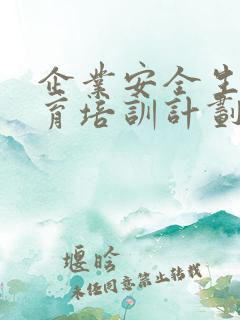 企業安全生
育培訓計劃
堰晗
未任同意禁止转载